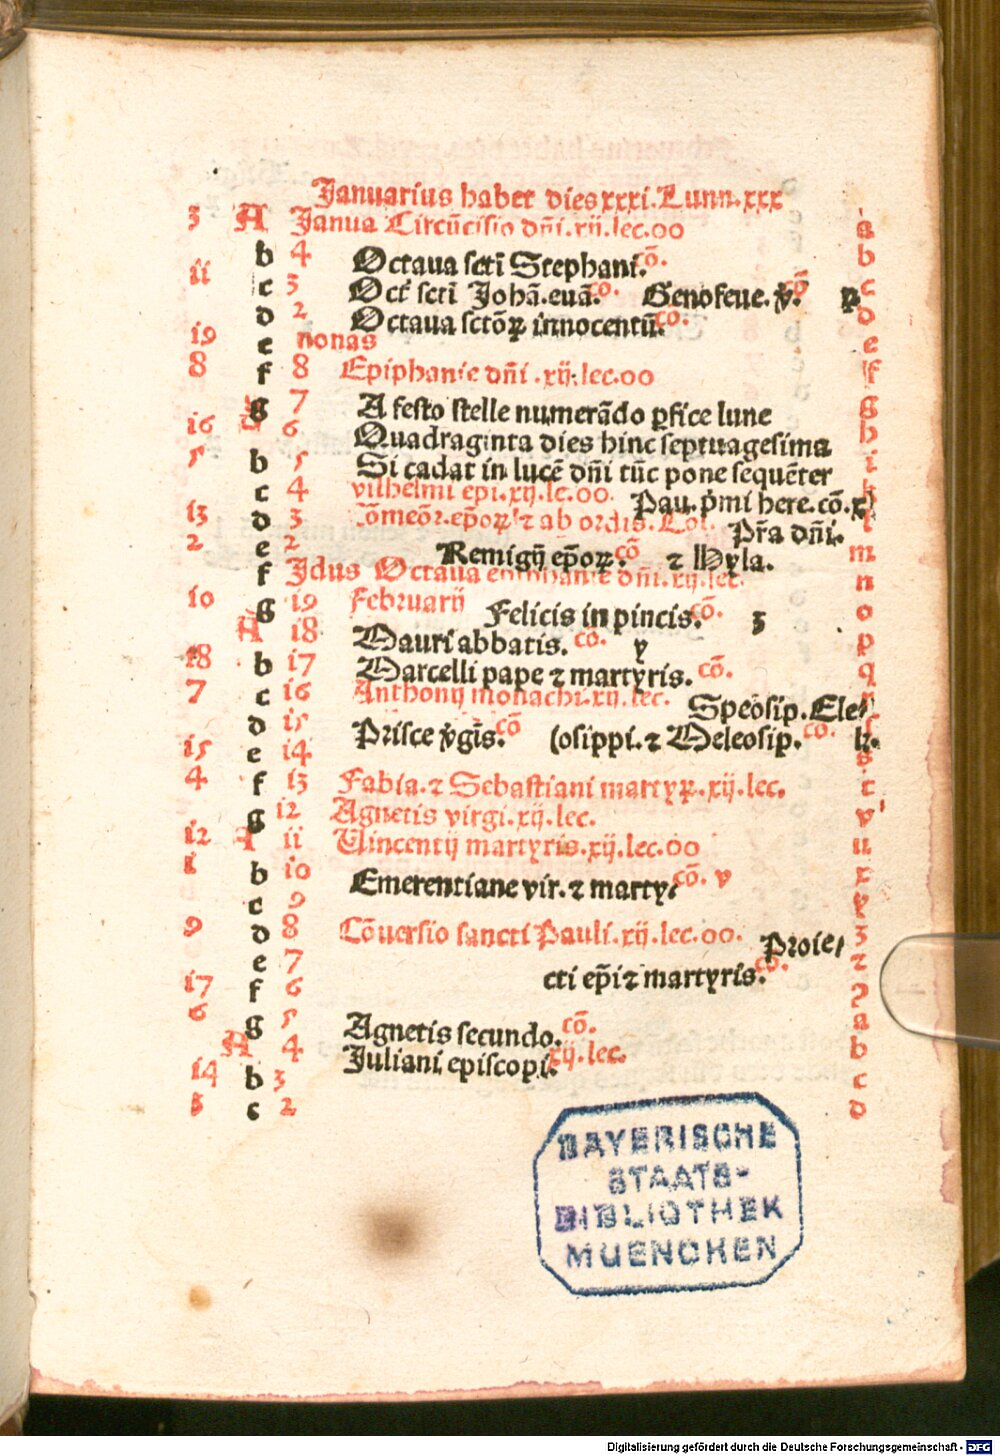 Januarius habet dies xxxi. Lunn. xxx
3 A Janua Circũcisio dñi. xij. lec. oo a
b 4 Octaua scti Stephani. cõ. b
ii c 3 Oct̃ scti Johã. euã. co. Genofeue. v̾. cõ c
d 2 Octaua sctõꝝ innocentũ. co. d
19 e nonas e
8 f 8 Epiphanie dñi. xij. lec. oo f
g 7 A festo stelle numerãdo ꝑfice lune g
16 A 6 Quadraginta dies hinc septuagesima h
5 b 5 Si cadat in lucẽ dñi tũc pone sequẽter i
c 4 vilhelmi epi. xij. lc. oo. Pau. p̾mi here. cõ. x k
13 d 3 õmeõr. ep̃oꝝ ⁊ ab ordis. Pr̃a dñi. l
2 e 2 Remigij ep̃oꝝ. cõ ⁊ Hyla. m
f Jdus Octaua epiphanie dñi. xij. lec. n
10 g 19 Februarij Felicis in pincis. cõ. 3 o
A 18 Mauri abbatis. co. y p
18 b 17 Marcelli pape ⁊ martyris. cõ. q
7 c 16 Anthonij monachi. xij. lec. Speõsip. Ele⸗ r
d 15 Prisce v̾gis. cõ (osippi. ⁊ Meleosip. co. s
15 e 14
4 f 13 Fabia. ⁊ Sebastiani martyꝝ. xij. lec. t
g 12 Agnetis virgi. xij. lec. v
12 A 11 Uincentij martyris. xij. lec. oo u
1 b 10 Emerentiane vir. ⁊ marty⸗ cõ. v x
c 9 y
9 d 8 Cõuersio sancti Pauli. xij. lec. oo. Proie⸗ z
e 7 cti ep̃i ⁊ martyris. co. ⁊
17 f 6 ꝯ
6 g 5 Agnetis secundo. cõ. a
A 4 Juliani episcopi. xij. lec. b
14 b 3 c
3 c 2 d
BAYERISCHE
STAATS-
BIBLIOTHEK
MUENCHEN
Digitalisierung gefördert durch die Deutsche Forschungsgemeinschaft - DFG